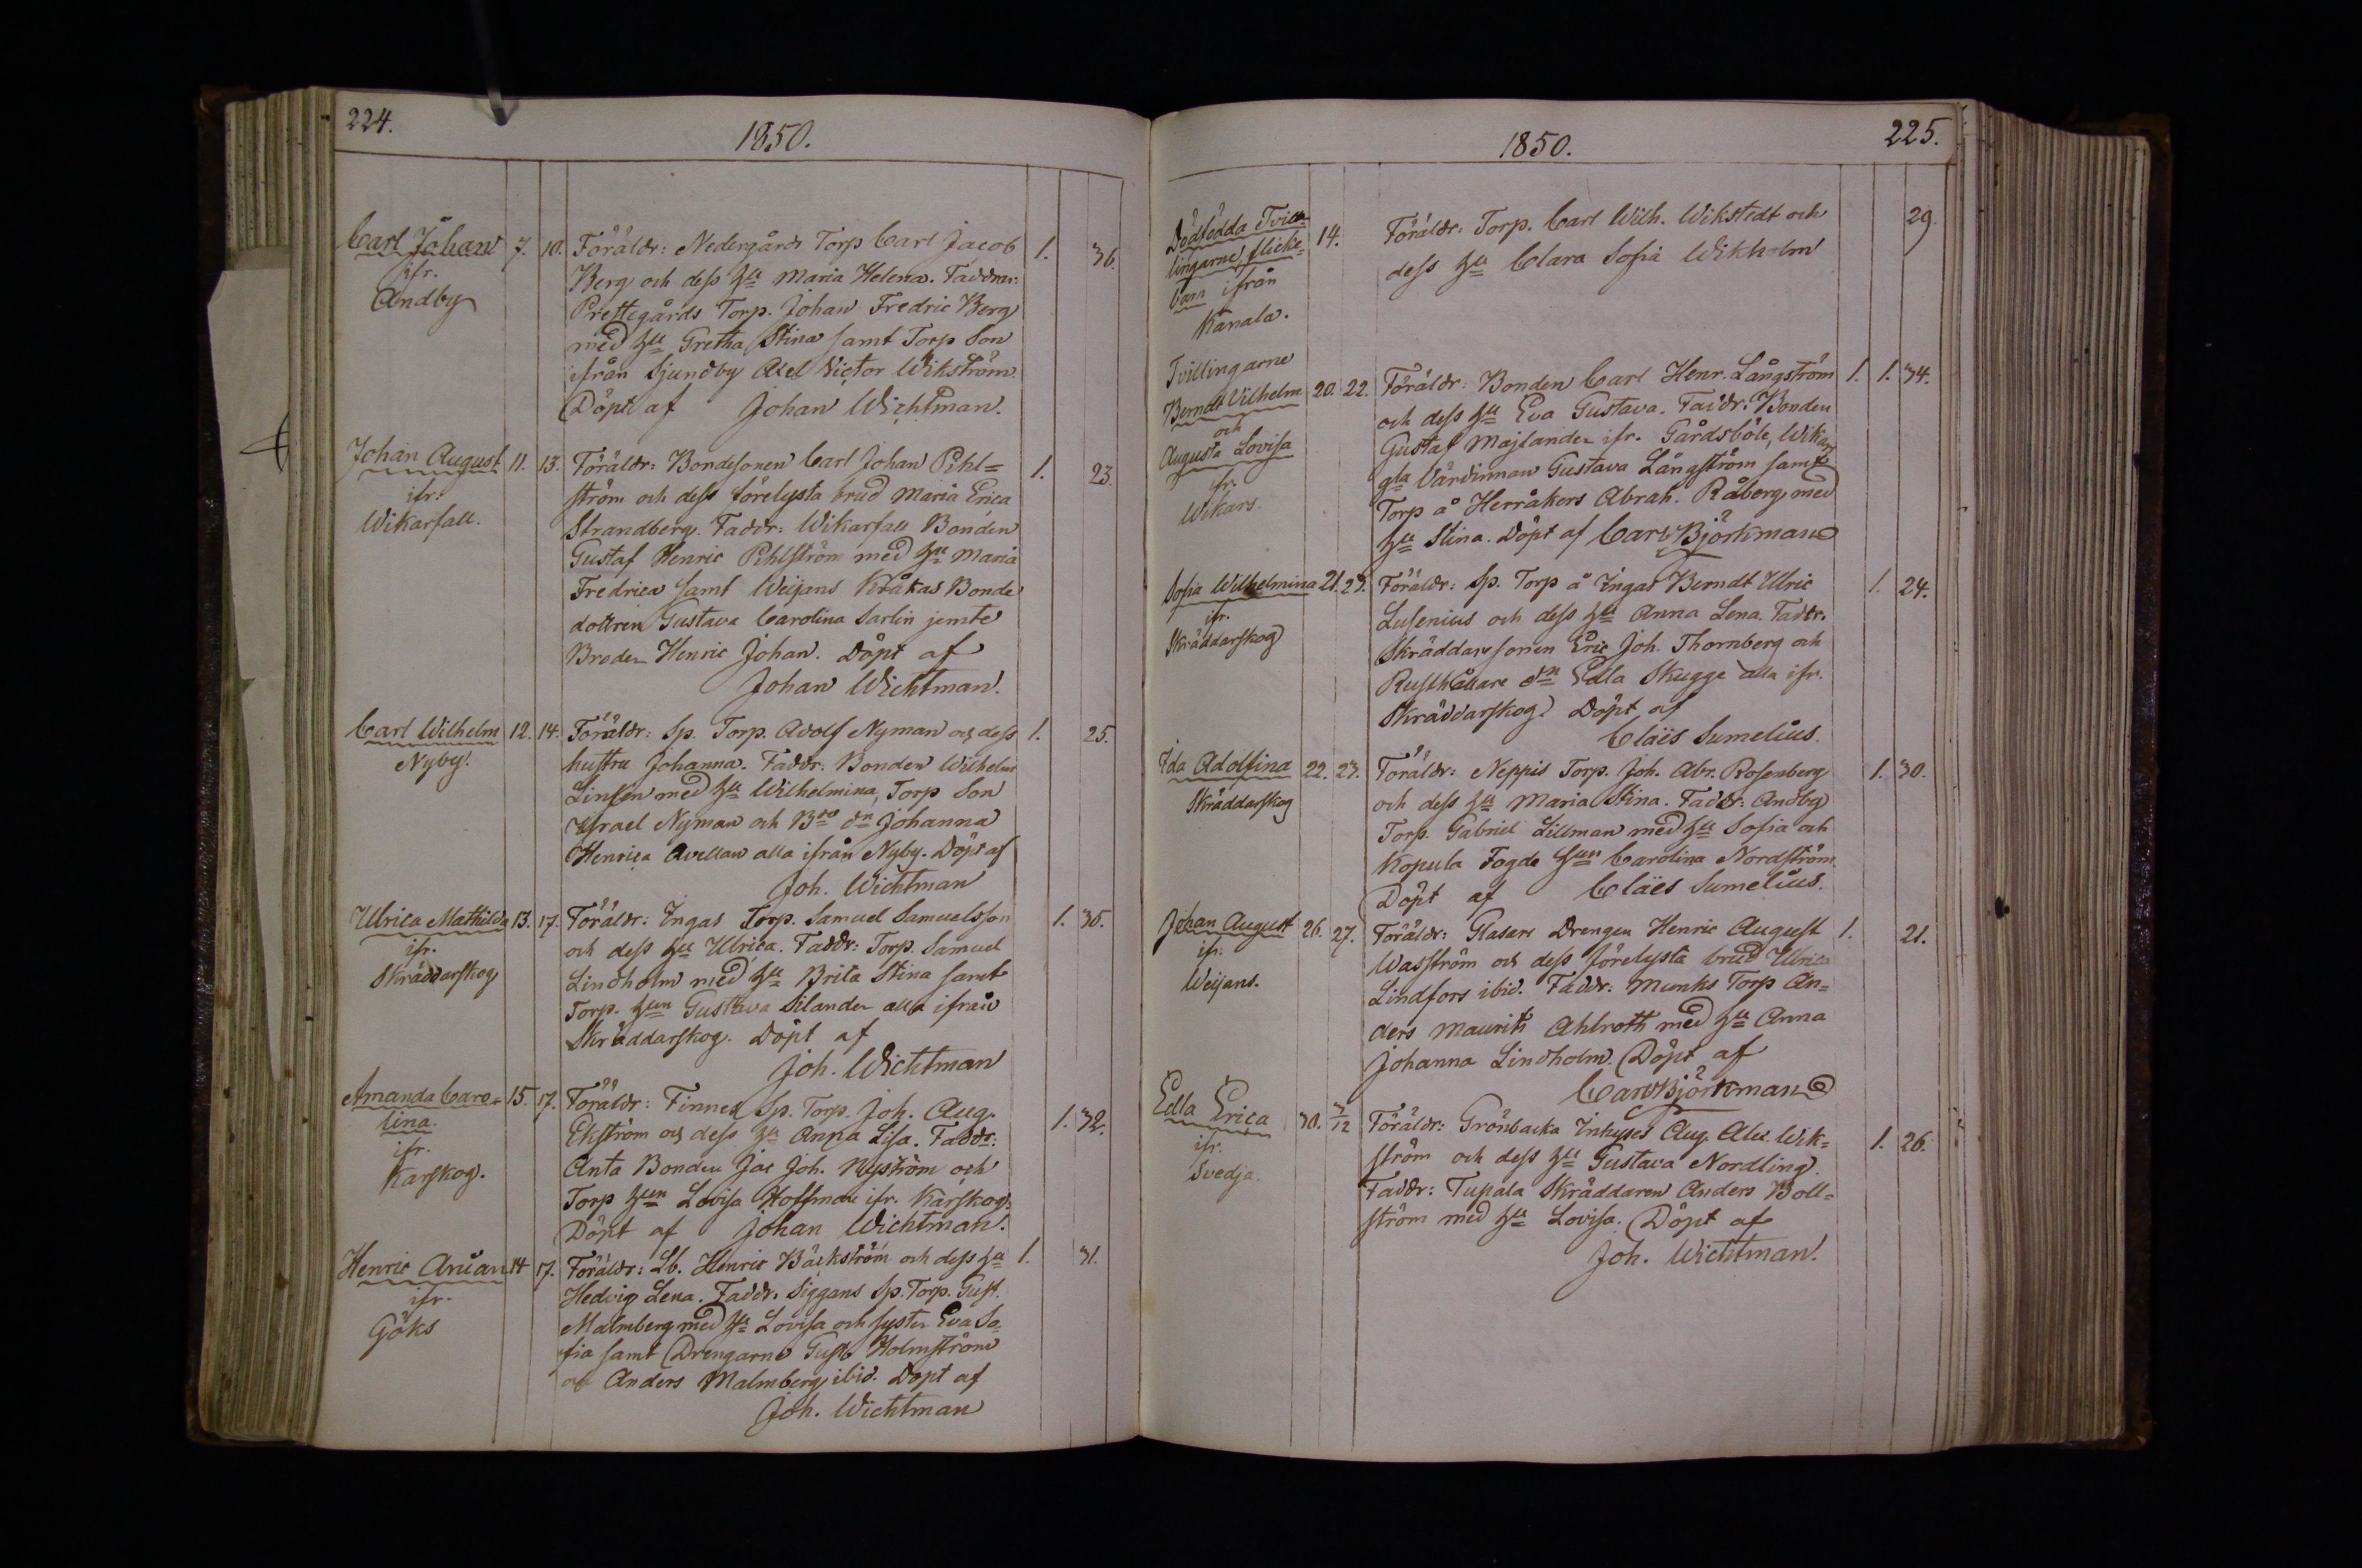 224.
1850.
Carl Johan 7. 10. Föräldr: Nedergårds Torp Carl Jacob 1. 36.
ifr. Berg och dess hu Maria Helena. Faddrar:
Andby Prestegårds Torp. Johan Fredric Berg
med hu Gretha Stina samt Torp Son
ifrån Sjundby Axel Victor Wikström.
Döpt af Johan Wichtman.
Johan August 11. 13. Föräldr: Bondesonen Carl Johan Pihl= 1. 23.
ifr. ström och dess förelysta brud Maria Erica
Wikarfall. Strandberg. Faddr: Wikarfall Bonden
Gustaf Henric Pihlström med hu Maria
Fredrica samt Weijans Kråkas Bonde
dottren Gustava Carolina Sarlin jemte
Broder Henric Johan. Döpt af
Johan Wichtman.
Carl Wilhelm 12. 14. Föräldr: Sp. Torp. Adolf Nyman och dess 1. 25.
Nyby. hustru Johanna. Faddr: Bonden Wilhelm
Linsen med hu Wilhelmina, Torp Son
Israel Nyman och Bde dn Johanna
Henrica Avellan alla ifrån Nyby. Döpt af
Joh. Wichtman
Ulrica Mathilda 13. 17. Föräldr: Ingas Torp. Samuel Samuelsson 1. 35.
ifr. och dess hu Ulrica. Faddr: Torp. Samuel
Skräddarskog Lindholm med hu Brita Stina samt
Torp. hun Gustava Silander alla ifrån
Skräddarskog. Döpt af
Joh. Wichtman
Amanda Caro= 15. 17. Föräldr: Finnes Sp. Torp. Joh. Aug. 1. 32.
lina. Ekström och dess hu Anna Lisa. Faddr:
ifr. Anta Bonden Jac Joh. Nyström och
Karskog. Torp hun Lovisa Hoffman ifr. Kårskog.
Döpt af Johan Wichtman.
Henric Aruan 14 17. Föräldr: Lb. Henric Bäckström och dess hu 1. 31.
ifr. Hedvig Lena. Faddr. Siggans Sp. Torp. Gust.
Göks Malmberg med hu Lovisa och syster Eva So=
fia samt Drengarne Gust Holmström
och Anders Malmberg ibid. Döpt af
Joh. Wichtman
1850.
225.
Dödfödda Tvil= 14. Föräldr: Torp. Carl Wilh. Wikstedt och 29.
lingarne flicke= dess hu Clara Sofia Wikholm
barn ifrån
Kanala.
Tvillingarne
Berndt Vilhelm 20. 22. Föräldr: Bonden Carl Henr. Långström 1. 1. 34.
och och dess hu Eva Gustava. Faddr: Bonden
Augusta Lovisa Gustaf Majlander ifr. Gårdsböle, Wikars
ifr. gla Värdinnan Gustava Långström samt
Wikars. Torp å Herråkers Abrah. Råberg med
hu Stina. Döpt af Carl Björkman
Sofia Wilhelmina 21. 23. Föräldr: Sp. Torp å Ingas Berndt Ulric 1. 24.
ifr. Lusenius och dess hu Anna Lena. Faddr.
Skräddarskog Skräddaresonen Eric Joh. Thornberg och
Rusthållare dn Edla Skugge alla ifr.
Skräddarskog. Döpt af
Claës Sumelius.
Ida Adolfina 22. 23. Föräldr: Neppis Torp. Joh. Abr. Rosenberg 1. 30.
Skräddarskog och dess hu Maria Stina. Faddr: Andby
Torp. Gabriel Lillman med hu Sofia och
Kopula Fogde hun Carolina Nordström.
Döpt af Claës Sumelius.
Johan August 26. 27. Föräldr: Glasars Drengen Henric August 1. 21.
ifr. Wasström och dess förelysta brud Ulrica
Weijans. Lindfors ibid. Faddr: Munks Torp An=
ders Maurits Ahlroth med hu Anna
Johanna Lindholm. Döpt af
Carl Björkman
Edla Erica 30. 3/12 Föräldr: Grönbacka Inhyses Aug. Alex. Wik= 1. 26.
ifr. ström och dess hu Gustava Nordling.
Svedja. Faddr: Tupala Skräddaren Anders Boll=
ström med hu Lovisa. Döpt af
Joh. Wichtman.